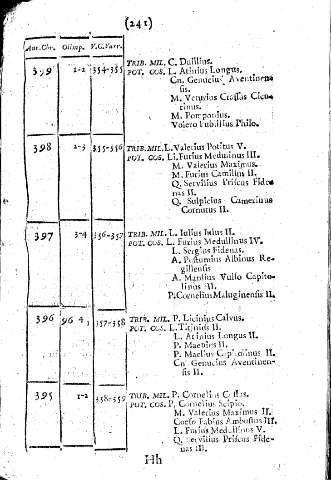 (241)
Ant. Chr. Olimp. V.C. Varr.
399 2-2 354-355 TRIB. MIL. C. Duillius.
POT. COS. L. Atinius Longus.
Cn. Genucius Aventinen
sis.
M. Veturius Crassus Cicu
rinus.
M. Pomponius.
Volero Publilius Philo.
398 2-3 355-356 TRIB. MIL. L. Valerius Potitus V.
POT. COS. Li. Furius Medullinus III.
M. Valerius Maximus.
M. Furius Camillus II.
Q. Servilius Priscus Fide
nas II.
Q. Sulpicius Camerinus
Cornutus II.
397 3-4 356-357 TRIB. MIL. L. Iulius Iulus II.
POT. COS. L. Furius Medullinus IV.
L. Sergius Fidenas.
A. Postumius Albinus Re-
gillensis
A. Manlius Vulso Capito-
linus II.
P. Cornelius Maluginensis II.
396 96 4, 357-358 TRIB. MIL. P. Licinius Calvus.
POT. COS. L. Titinius II.
L. Atinius Longus II.
P. Maenius II.
P. Maelius Capitolinus II.
Cn Genucius Aventinen-
sis II.
395 1-2 358-359 TRIB. MIL. P. Cornelius Cossus.
POT. COS. P. Cornelius Scipio.
M. Valerius Maximus II.
Caeso Fabius Ambustus III.
L. Furius Medullinus V.
Q. Servilius Priscus Fide-
nas III.
Hh